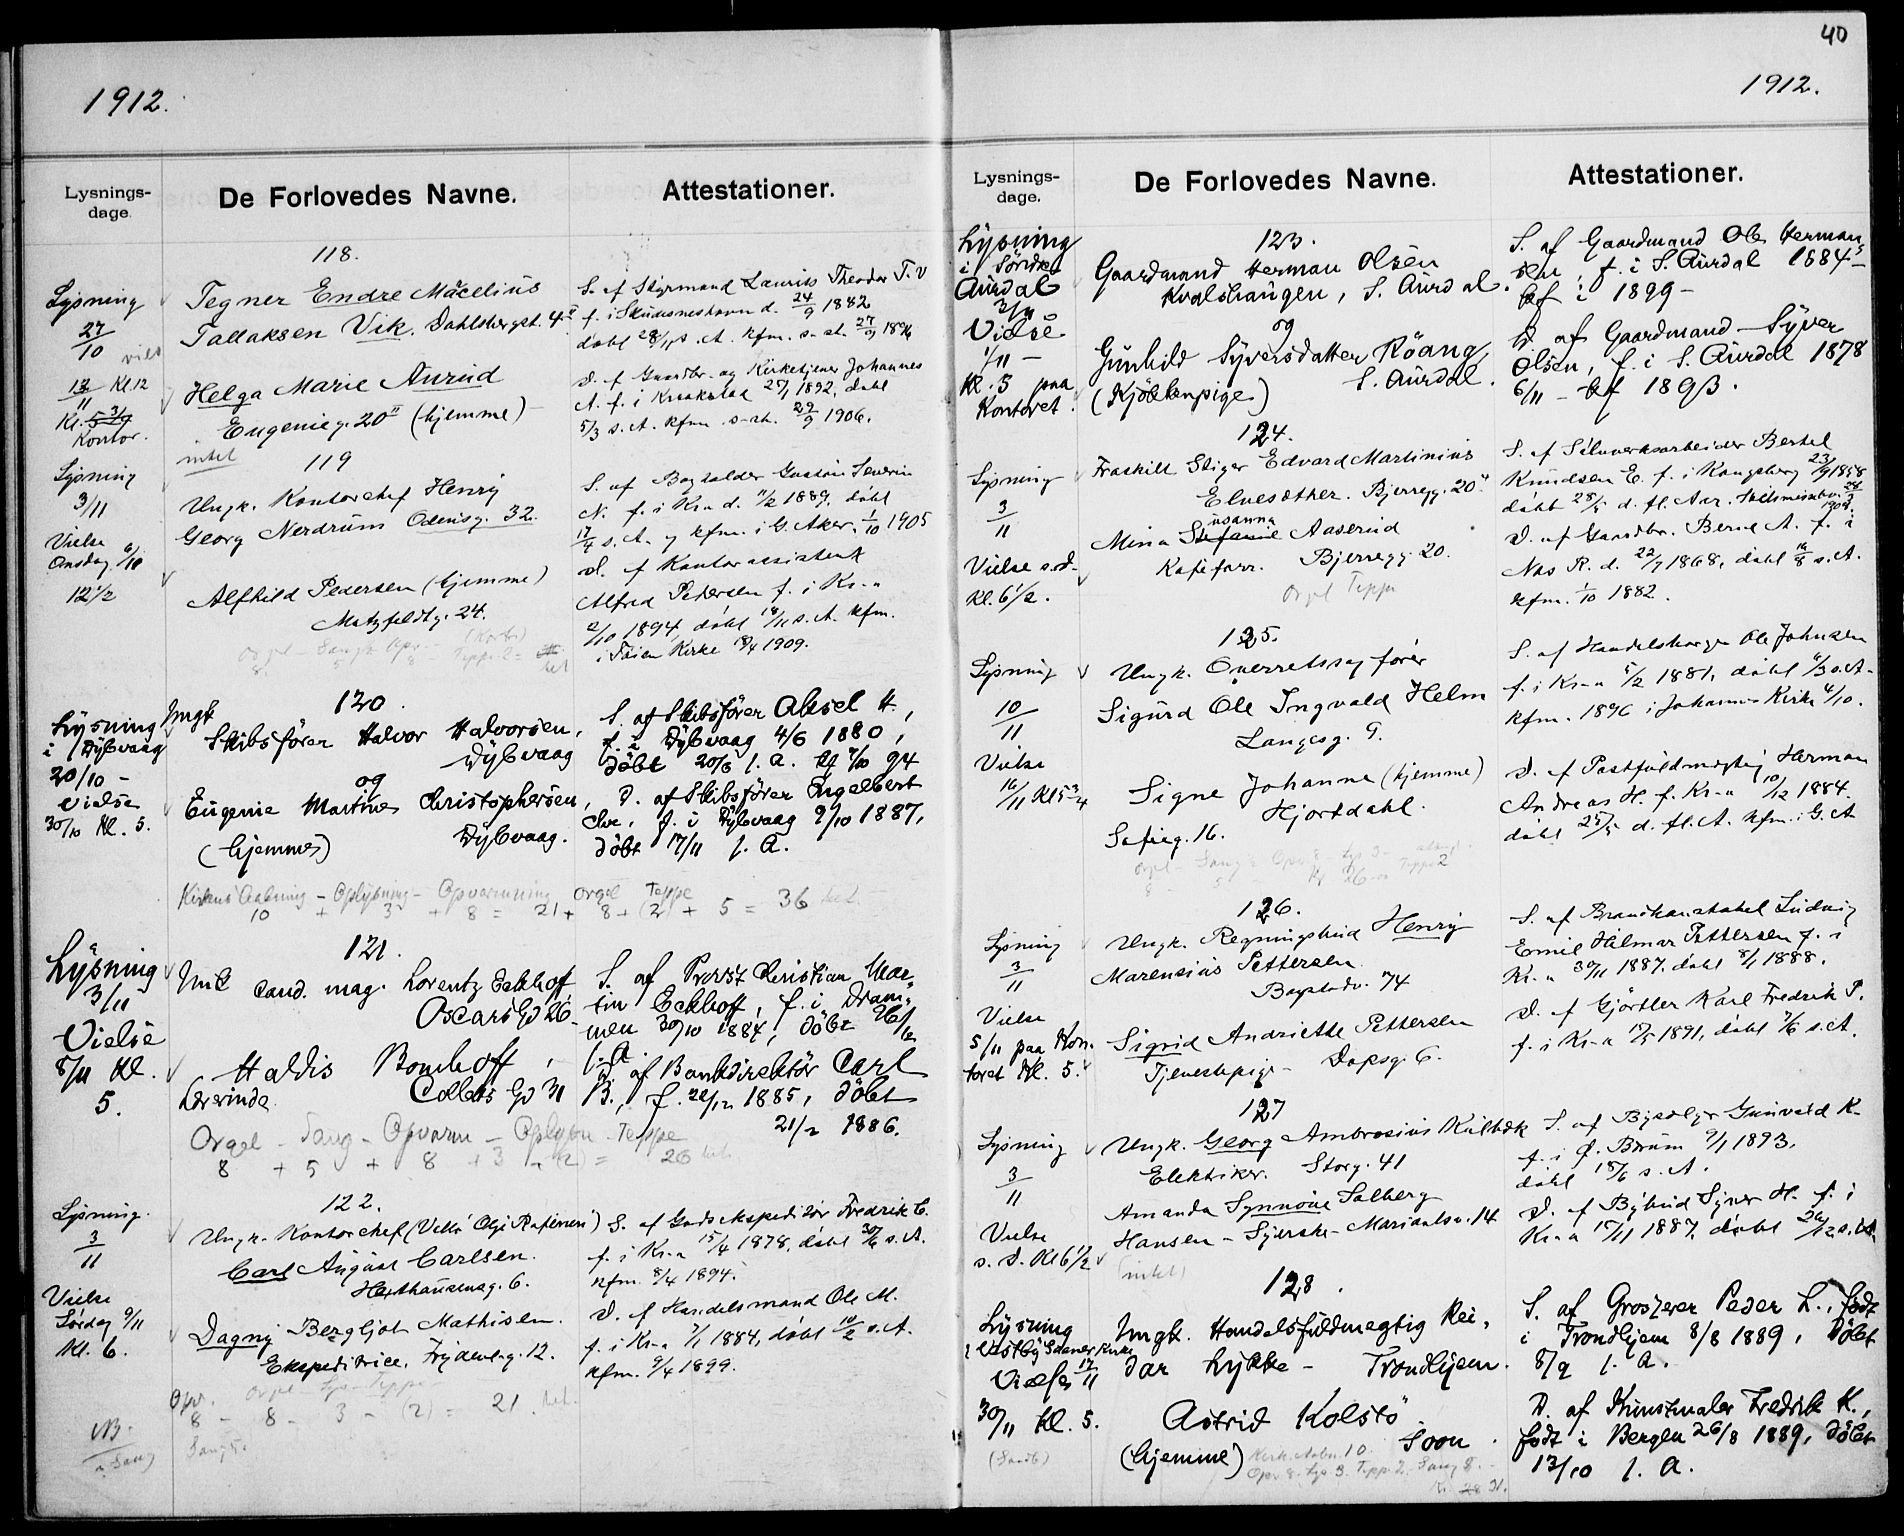 1912.
Lysnings-
dage.
De Forlovedes Navne.
Attestationer.
118.
Lysning
27/10
13/11 Kl. 12
Kl. 5
Kontor.
Tegner Endre Mäcelius
Tallaksen Vik. Dahlsbergst. 4
Helga Marie Aurud
Eugenieg. 20 II (hjemme)
intet
S. af Styrmand Laurits Theodor T. V
f. i Skudesneshavn d. 24/9 1882
døbt s. A. kfm. s. st. 27/9 1896
D. af Gaardbr. og Kirketjener Johannes
A. f. i 1892, døbt
5/3 s. A. kfm. s. st. 29/9 1906.
119
Lysning
3/11
Vielse
Onsdag 6/10
12 1/2
Ungk. Kontorchef Henry
Georg Nerdrum Odensg. 32.
Alfhild Pedersen (hjemme)
Motzfeldtg. 24.
S. af Bogholder Gustav Severin
N. f. i Kr.a d. 11/2 1889, døbt
17/4 s. A. og kfm. i G. Aker. 1/10 1905
D. af Kontorassistent
Alfred Petersen f. i Kr.a
2/10 1894, døbt 18/11 s. A. kfm.
i Tøien Kirke 18/4 1909.
120.
Lysning
i Dybvaag
20/10 -
Vielse
30/10 Kl. 5.
Ungk
Skibsfører Halvor Halvorsen,
Dybvaag
og
Eugenie Martine Christophersen,
(hjemme) Dybvaag.
S. af Skibsfører Aksel H.,
f. i Dybvaag 4/6 1880,
døbt 20/6 s. A. kf 7/10 94
D. af Skibsfører Engelbert
Chr., f. i Dybvaag 9/10 1887,
døbt 17/11 s. A.
Kirkens Aabning - Oplysning - Opvarmning Orgel Teppe
10 + 3 + 8 = 21 + 8 + (2) + 5 = 36
121.
Lysning
3/11
Vielse
8/11 Kl.
5.
Unk cand. mag. Lorentz Eckhoff
Oscars Gd 26
Haldis Bomhoff,
Lærerinde Colletts Gd 31
S. af Provst Christian Mar-
tin Eckhoff, f. i Dram-
men 30/10 1884, døbt 26/12
s. A.
D. af Bankdirektør Carl
B., f. 22/12 1885, døbt
21/2 1886.
Orgel - Sang - Opvarm - Oplysn - Teppe
8 + 5 + 8 + 3 + (2) = 26
122.
Lysning.
3/11
Vielse
Lørdag 9/11
Kl. 6.
Ungk. Kontorchef
Carl August Carlsen.
Herthausensg. 6.
Dagny Bergljot Mathisen.
Ekspeditrice, Frydenlg. 12.
S. af Godsekspeditør Fredrik C.
f. i Kr.a 15/4 1878, døbt 30/6 s. A.
kfm. 8/4 1894.
D. af Handelsmand Ole M.
f. i Kr.a 7/1 1884, døbt 10/2 s. A.
kfm. 9/4 1899.
Opv. Orgel Lys Teppe
8 - 8 - 3 - (2) = 21
NB.
40
1912.
Lysnings-
dage.
De Forlovedes Navne.
Attestationer.
123.
Lysning
i Söndre
Aurdal
3/11
Vielse
1/11 -
Kl. 5 paa
Kontoret.
Gaardmand Herman Olsen
Kvalshaugen, S. Aurdal.
og
Gunhild Syversdatter Röang,
(Kjökkenpige) S. Aurdal.
S. af Gaardmand Ole Herman-
sen, f. i S. Aurdal 1884 -
kf i 1899 -
D. af Gaardmand Syver
Olsen, f. i S. Aurdal 1878
6/11 - kf 1893.
124.
Lysning
3/11
Vielse s. d.
Kl. 6 1/2.
Fraskilt Stiger Edvard Martinius
Elvesæther. Bjerregg. 20 II
Mina Stefanie Susanna Aaserud
Kaféforr. Bjerregg. 20.
Orgel Teppe
S. af Sølvverksarbeider Bertel
Knudsen E. f. i Kongsberg 23/9 1858
døbt 28/5 d. fl. Aar.
D. af Gaardbr. Bernt A. f. i
Nes R. d. 22/7 1868, døbt 16/8 s. A.
kfm. 1/10 1882.
125.
Lysning
10/11
Vielse
16/11 Kl 5 3/4
Ungk. Overretssagfører
Sigurd Ole Ingvald Helm
Langesg. 9.
Signe Johanne (hjemme)
Hjortdahl.
Sofieg. 16.
S. af Handelsborger Ole Johnsen
f. i Kr.a 5/2 1881, døbt 6/3 s. A.
kfm. 1896 i Johannes Kirke 4/10.
D. af Postfuldmægtig Herman
Andreas H. f. Kr.a 10/12 1884.
døbt 25/5 d. fl. A. kfm. i G. A
126.
Lysning
3/11
Vielse
5/11 paa Kon-
toret Kl. 5.
Ungk. Regningsbud Henry
Marensius Pettersen
Bogstadv. 74
Sigrid Andriette Pettersen
Tjenestepige - Dopsg. 6.
S. af Brandkonstabel Ludvig
Emil Hilmar Pettersen f. i
Kr.a 30/11 1887, døbt 8/1 1888.
D. af Gjørtler Karl Fredrik P.
f. i Kr.a 1891, døbt 7/6 s. A.
127
Lysning
3/11
Vielse
s. D. Kl 6 1/2
Ungk. Georg Ambrosius Kulbæk
Elektriker. Storg. 41
Amanda Synnöve Solberg
Hansen - Syerske - Maridalsv. 14
(intet)
S. af Bysælger Gunvald K.
f. i Ø. Bærum 9/1 1893.
døbt 18/6 s. A.
D. af Bybud Syver H. f. i
Kr.a 17/11 1887, døbt 26/12 s. A.
128.
Lysning
i Vestby Sooner Kirke
Vielse 17/11
30/11 Kl. 5.
Ungk. Handelsfuldmægtig Rei-
dar Lykke - Trondhjem.
Astrid Kolstö
(hjemme) Soon.
S. af Grosserer Peder L., født
i Trondhjem 8/8 1889, døbt
8/9 s. A.
D. af Kunstmaler Fredrik K.,
født i Bergen 26/8 1889, døbt
13/10 s. A.
Kirk. Aabn. 10.
Opv. 8. Lys 3. Tepp. 2. Sang 8.